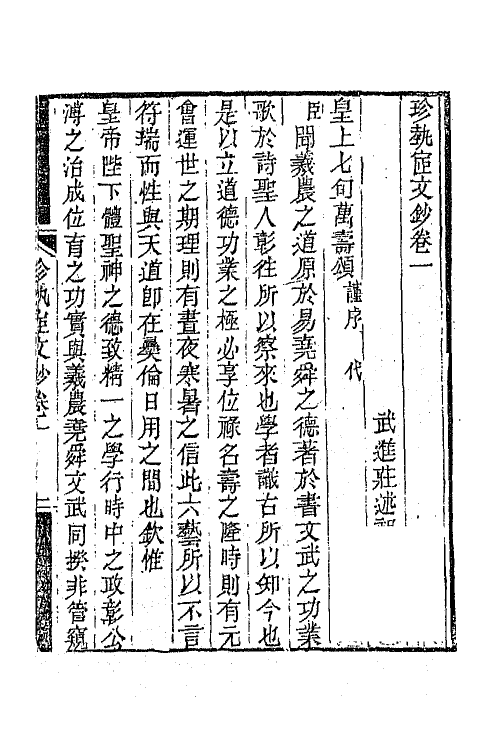 珍埶宧文鈔卷一
武進莊述祖
皇上七旬萬壽頌謹序 代
臣聞羲農之道原於易堯舜之德著於書文武之功業
歌於詩聖人彰往所以察來也學者識古所以知今也
是以立道德功業之極必享位祿名壽之隆時則有元
會運世之期理則有晝夜寒暑之信此六藝所以不言
符瑞而性與天道卽在彜倫日用之間也欽惟
皇帝陛下體聖神之德致精一之學行時中之政彰公
溥之治成位育之功實與羲農堯舜文武同揆非管窺
珍埶宧文鈔卷一 一